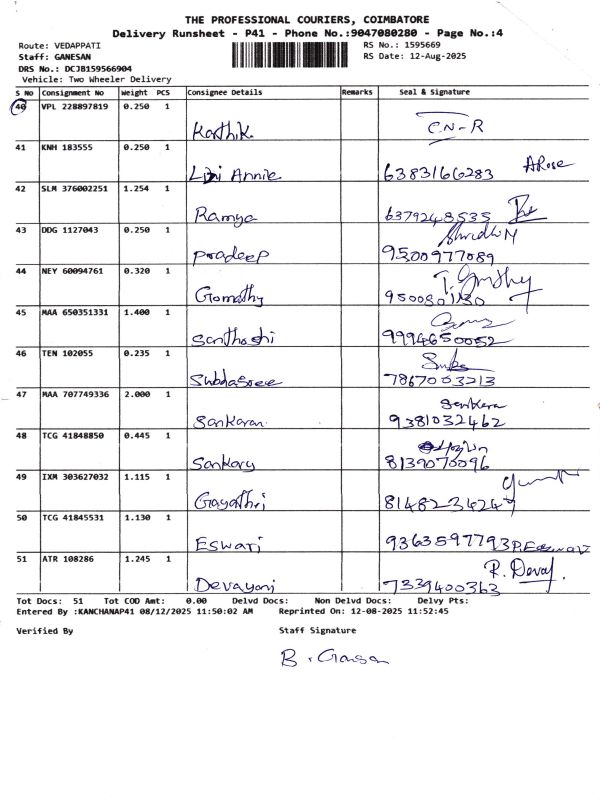 THE PROFESSIONAL COURIERS, COIMBATORE
Delivery Runsheet - P41 - Phone No.:9047080280 - Page No.:4
Route: VEDAPPATI RS No.: 1595669
Staff: GANESAN RS Date: 12-Aug-2025
DRS No.: DCJB159566904
Vehicle: Two Wheeler Delivery
S No Consignment No Weight PCS Consignee Details Remarks Seal & Signature
40 VPL 228897819 0.250 1
Karthik C.N-R
41 KNH 183555 0.250 1
Annie 6383166283 A Rose
42 SLM 376002251 1.254 1
Ramya 6379248535
43 DDG 1127043 0.250 1
Pradeep 9500977089
44 NEY 60094761 0.320 1
Gomathy
45 MAA 650351331 1.400 1
Santhoshi 9994650052
46 TEN 102055 0.235 1
Subhasree 7867003213
47 MAA 707749336 2.000 1
Sankaran 9381032462
48 TCG 41848850 0.445 1
8139070096
49 IXM 303627032 1.115 1
Gayathri 8148234249
50 TCG 41845531 1.130 1
Eswari 9363597793
51 ATR 108286 1.245 1 R. Devaj.
Devayani 7339400363
Tot Docs: 51 Tot COD Amt: 0.00 Delvd Docs: Non Delvd Docs: Delvy Pts:
Entered By :KANCHANAP41 08/12/2025 11:50:02 AM Reprinted On: 12-08-2025 11:52:45
Verified By Staff Signature